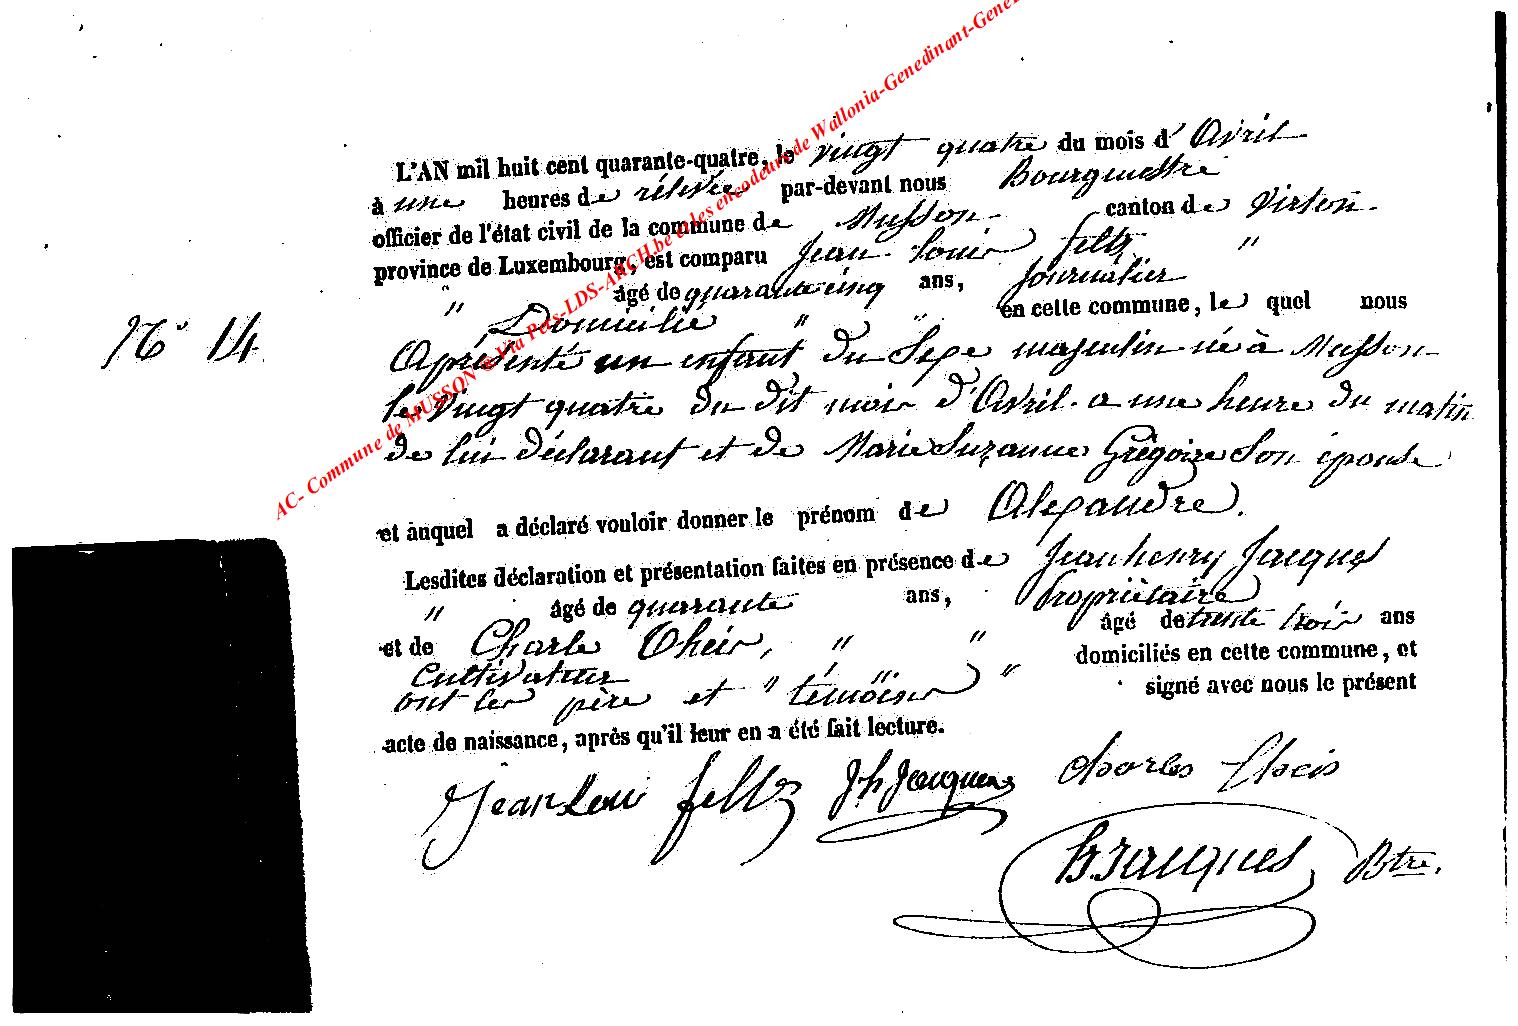 L'AN mil huit cent quarante-quatre, le vingt quatre du mois d'Avril
à une heures de rélevée par-devant nous Bourguestre
officier de l'état civil de la commune de Musson canton de Virton.
province de Luxembourg, est comparu Jean Louis feltz "
" âgé de quarante cinq ans, Journalier
Domicilié " " en cette commune, le quel nous
N° 14.
a présenté un enfant du Sexe masculin né à Musson
le vingt quatre du dit mois d'Avril a une heure du matin
de lui déclarant et de Marie Suzanne Grégoire Son épouse
et auquel a déclaré vouloir donner le prénom de Alexandre.
Lesdites déclaration et présentation faites en présence de Jean henry Jacques
" âgé de quarante ans, Propriétaire
et de Charle Theis, " " âgé de trente trois ans
Cultivateur domiciliés en cette commune, et
ont les père et " témoins " signé avec nous le présent
acte de naissance, après qu'il leur en a été fait lecture.
Jean Loui feltz Jh Jacques Charles Theis
h. Jacques Btre.
AC- Commune de MUSSON Via Pats-LDS-ARCH.be et les encodeurs de Wallonia-Genedinant-Gene